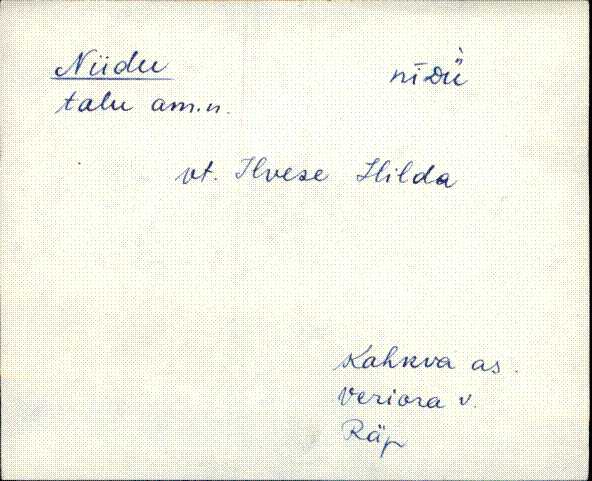 Niidu nīᴅǜ
talu am.n.
vt. Ilvese Hilda
Kahkva as.
Veriora v.
Räp